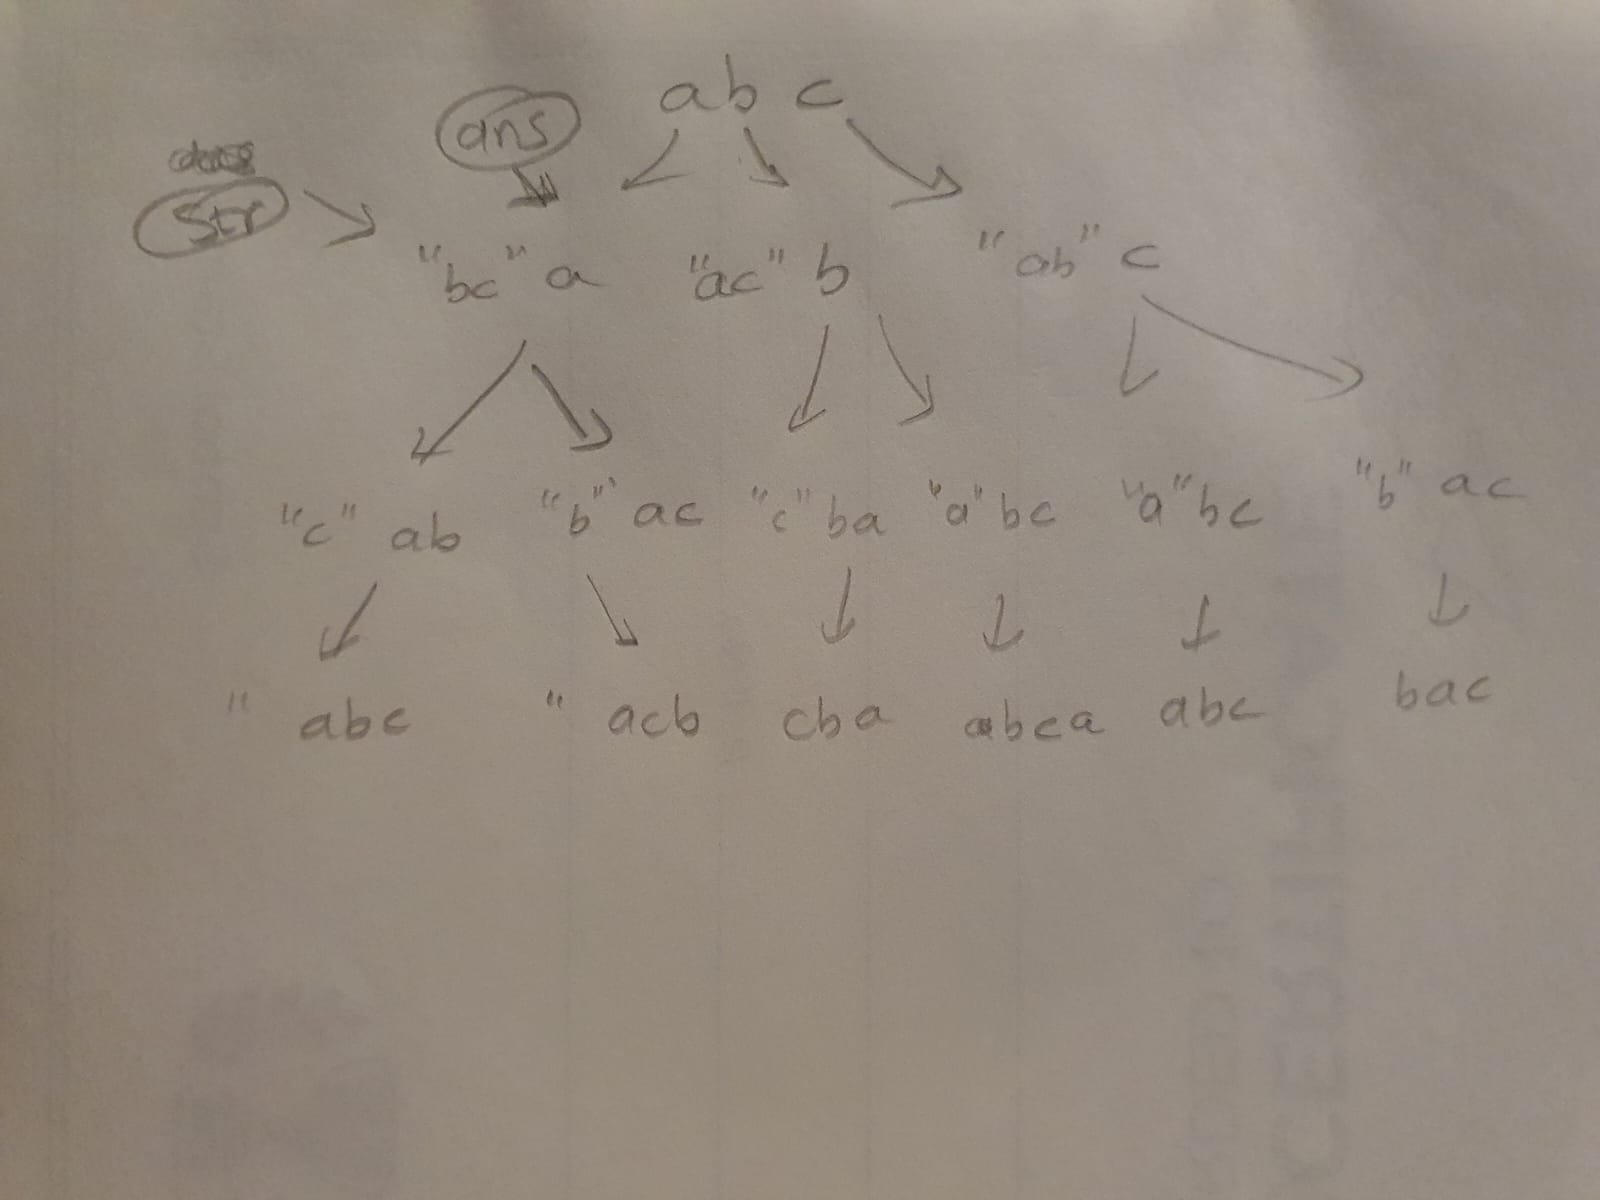 abc
ans
Str
"bc" a "ac" b "ab" c
"c" ab "b" ac "c" ba "a" bc "a" bc "b" ac
" abc " acb cba abca abc bac